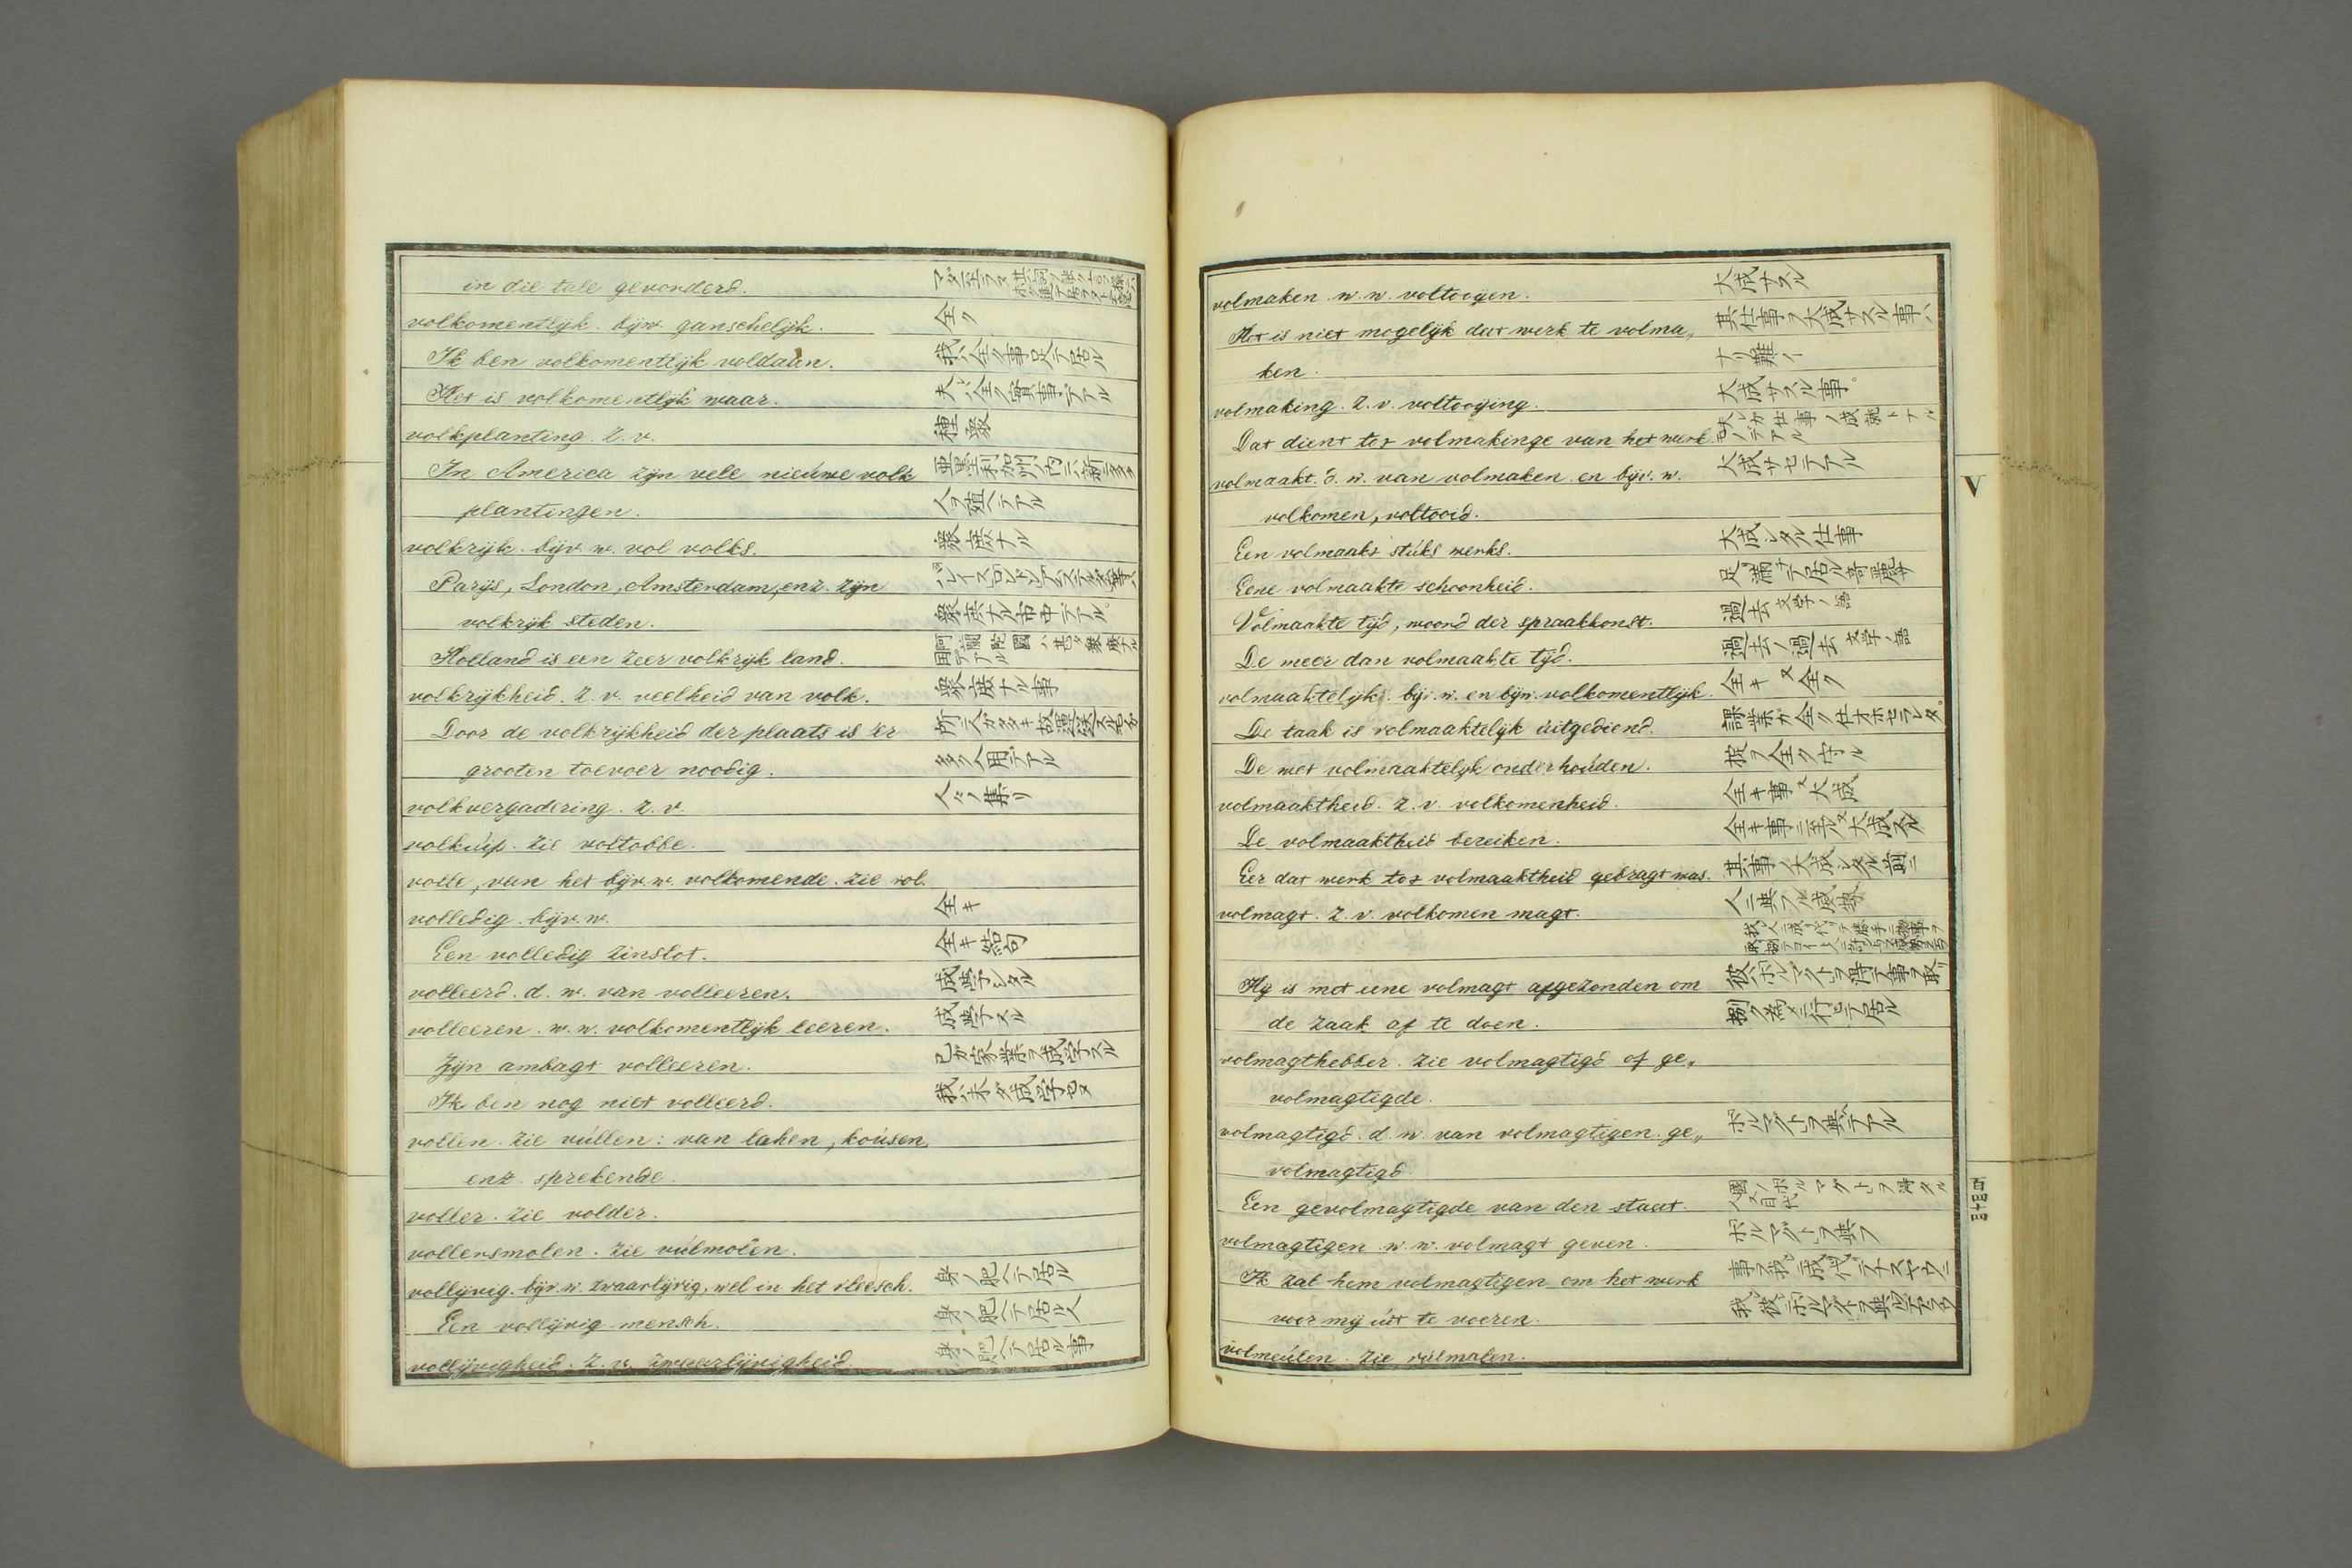 in die tale gevorderd.
volkomentlijk. bijw. ganschelijk. 全ク
Ik ben volkomentlijk voldaan. 我ハ全ク事足テ居ル
Het is volkomentlijk waar. 夫ハ全ク實事デアル
volkplanting. z. v. 種聚
In America zijn vele nieúwe volk 亜墨利加州ノ内ニハ新ニ多ク
plantingen. 人ヲ植ヘテアル
volkrijk. bijv. w. vol volks. 聚庶ナル
Parijs, London, Amsterdam, enz. zijn
volkrijk steden. 聚庶ナル市中デアル。
Holland is een zeer volkrijk land. 阿蘭陀國ハ甚タ聚庶ナル國デアル
volkrijkheid. z. v. veelheid van volk. 聚庶ナル事
Door de volkrijkheid der plaats is 'er
grooten toevoer noodig. 多ク入用デアル
volkvergadering. z. v. 人々ノ集リ
volkúip. zie voltobbe.
volle, van het bijv. w. volkomende. zie vol.
volledig. bijv. w. 全キ
Een volledig zinslot. 全キ結句
volleerd. d. w. van volleeren. 成學シタル
volleeren. w. w. volkomentlijk leeren. 成學スル
Zijn ambagt volleeren. 己ガ家業ヲ成學スル
Ik ben nog niet volleerd. 我ハ未ダ成學セヌ
vollen. zie vúllen: van laken, koúsen,
enz. sprekende.
voller. zie volder.
vollersmolen. zie vúlmolen.
vollijvig. bijv. w. zwaarlijvig, wel in het vleesch. 身ノ肥ヘテ居ル
Een vollijvig mensch. 身ノ肥ヘテ居ル人
vollijvigheid. z. v. zwaarlijvigheid. 身ノ肥ヘテ居ル事
volmaken. w. w. voltooijen. 大成サスル
Het is niet mogelijk dat werk te volma„ 其仕事ヲ大成サスル事ハ
ken. ナリ難イ
volmaking. z. v. voltooijing. 大成サスル事。
Dat dient tot volmakinge van het werk. 夫レガ仕事ノ成就トナルモノデアル
volmaakt. d. w. van volmaken. en bijv. w. 大成サセテアル
volkomen, voltooid.
Een volmaakt stúks werks. 大成シタル仕事
Eene volmaakte schoonheid. 足満チテ居ル奇麗サ
Volmaakte tijd, woord der spraakkonst. 過去 文学ノ語
De meer dan volmaakte tijd. 過去ノ過去 文学ノ語
volmaaktelijk. bijv. w. en bijw. volkomentlijk. 全キ 又全ク
De taak is volmaaktelijk úitgediend. 課業ガ全ク仕オホセラレタ。
De wet volmaaktelijk onderhoúden. 掟ヲ全ク守ル
volmaaktheid. z. v. volkomenheid. 全キ事 又大成
De volmaaktheid bereiken. 全キ事ニ至ル 又大成スル
Eer dat werk tot volmaaktheid gebragt was. 其事ノ大成シタル前ニ
volmagt. z. v. volkomen magt. 人ニ與フル威權
Hij is met eene volmagt afgezonden om 彼ハホルマクトヲ得テ事ヲ取リ
de zaak af te doen. 捌ク為メニ行ヒテ居ル
volmagthebber. zie volmagtigd of ge„
volmagtigde.
volmagtigd. d. w. van volmagtigen. ge„ ホルマクトヲ與ヘテアル
volmagtigd.
Een gevolmagtigde van den staat. 國ノホルマクトヲ得タル人
volmagtigen. w. w. volmagt geven. ホルマクトヲ與フ
Ik zal hem volmagtigen om het werk
voor mij úit te voeren.
volmeúlen. zie vúlmolen.
V